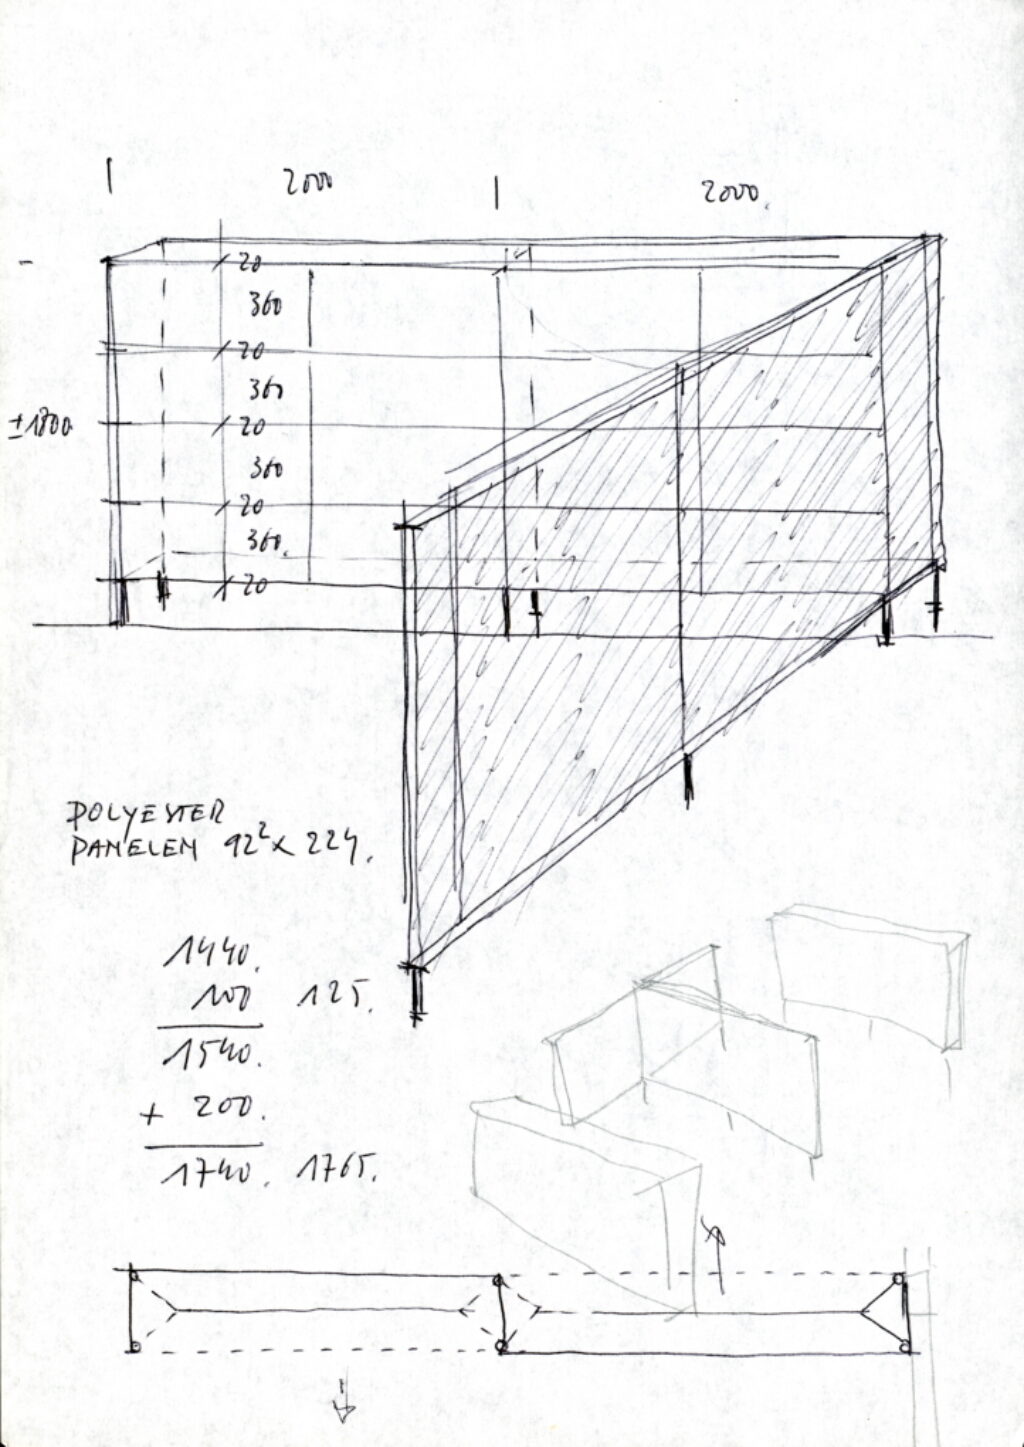 2000
2000.
20
360
20
360
±1800
20
360
20
360.
20
POLYESTER
PANELEN 92² x 224.
1440.
100 125.
1540.
+ 200.
1740. 1765.